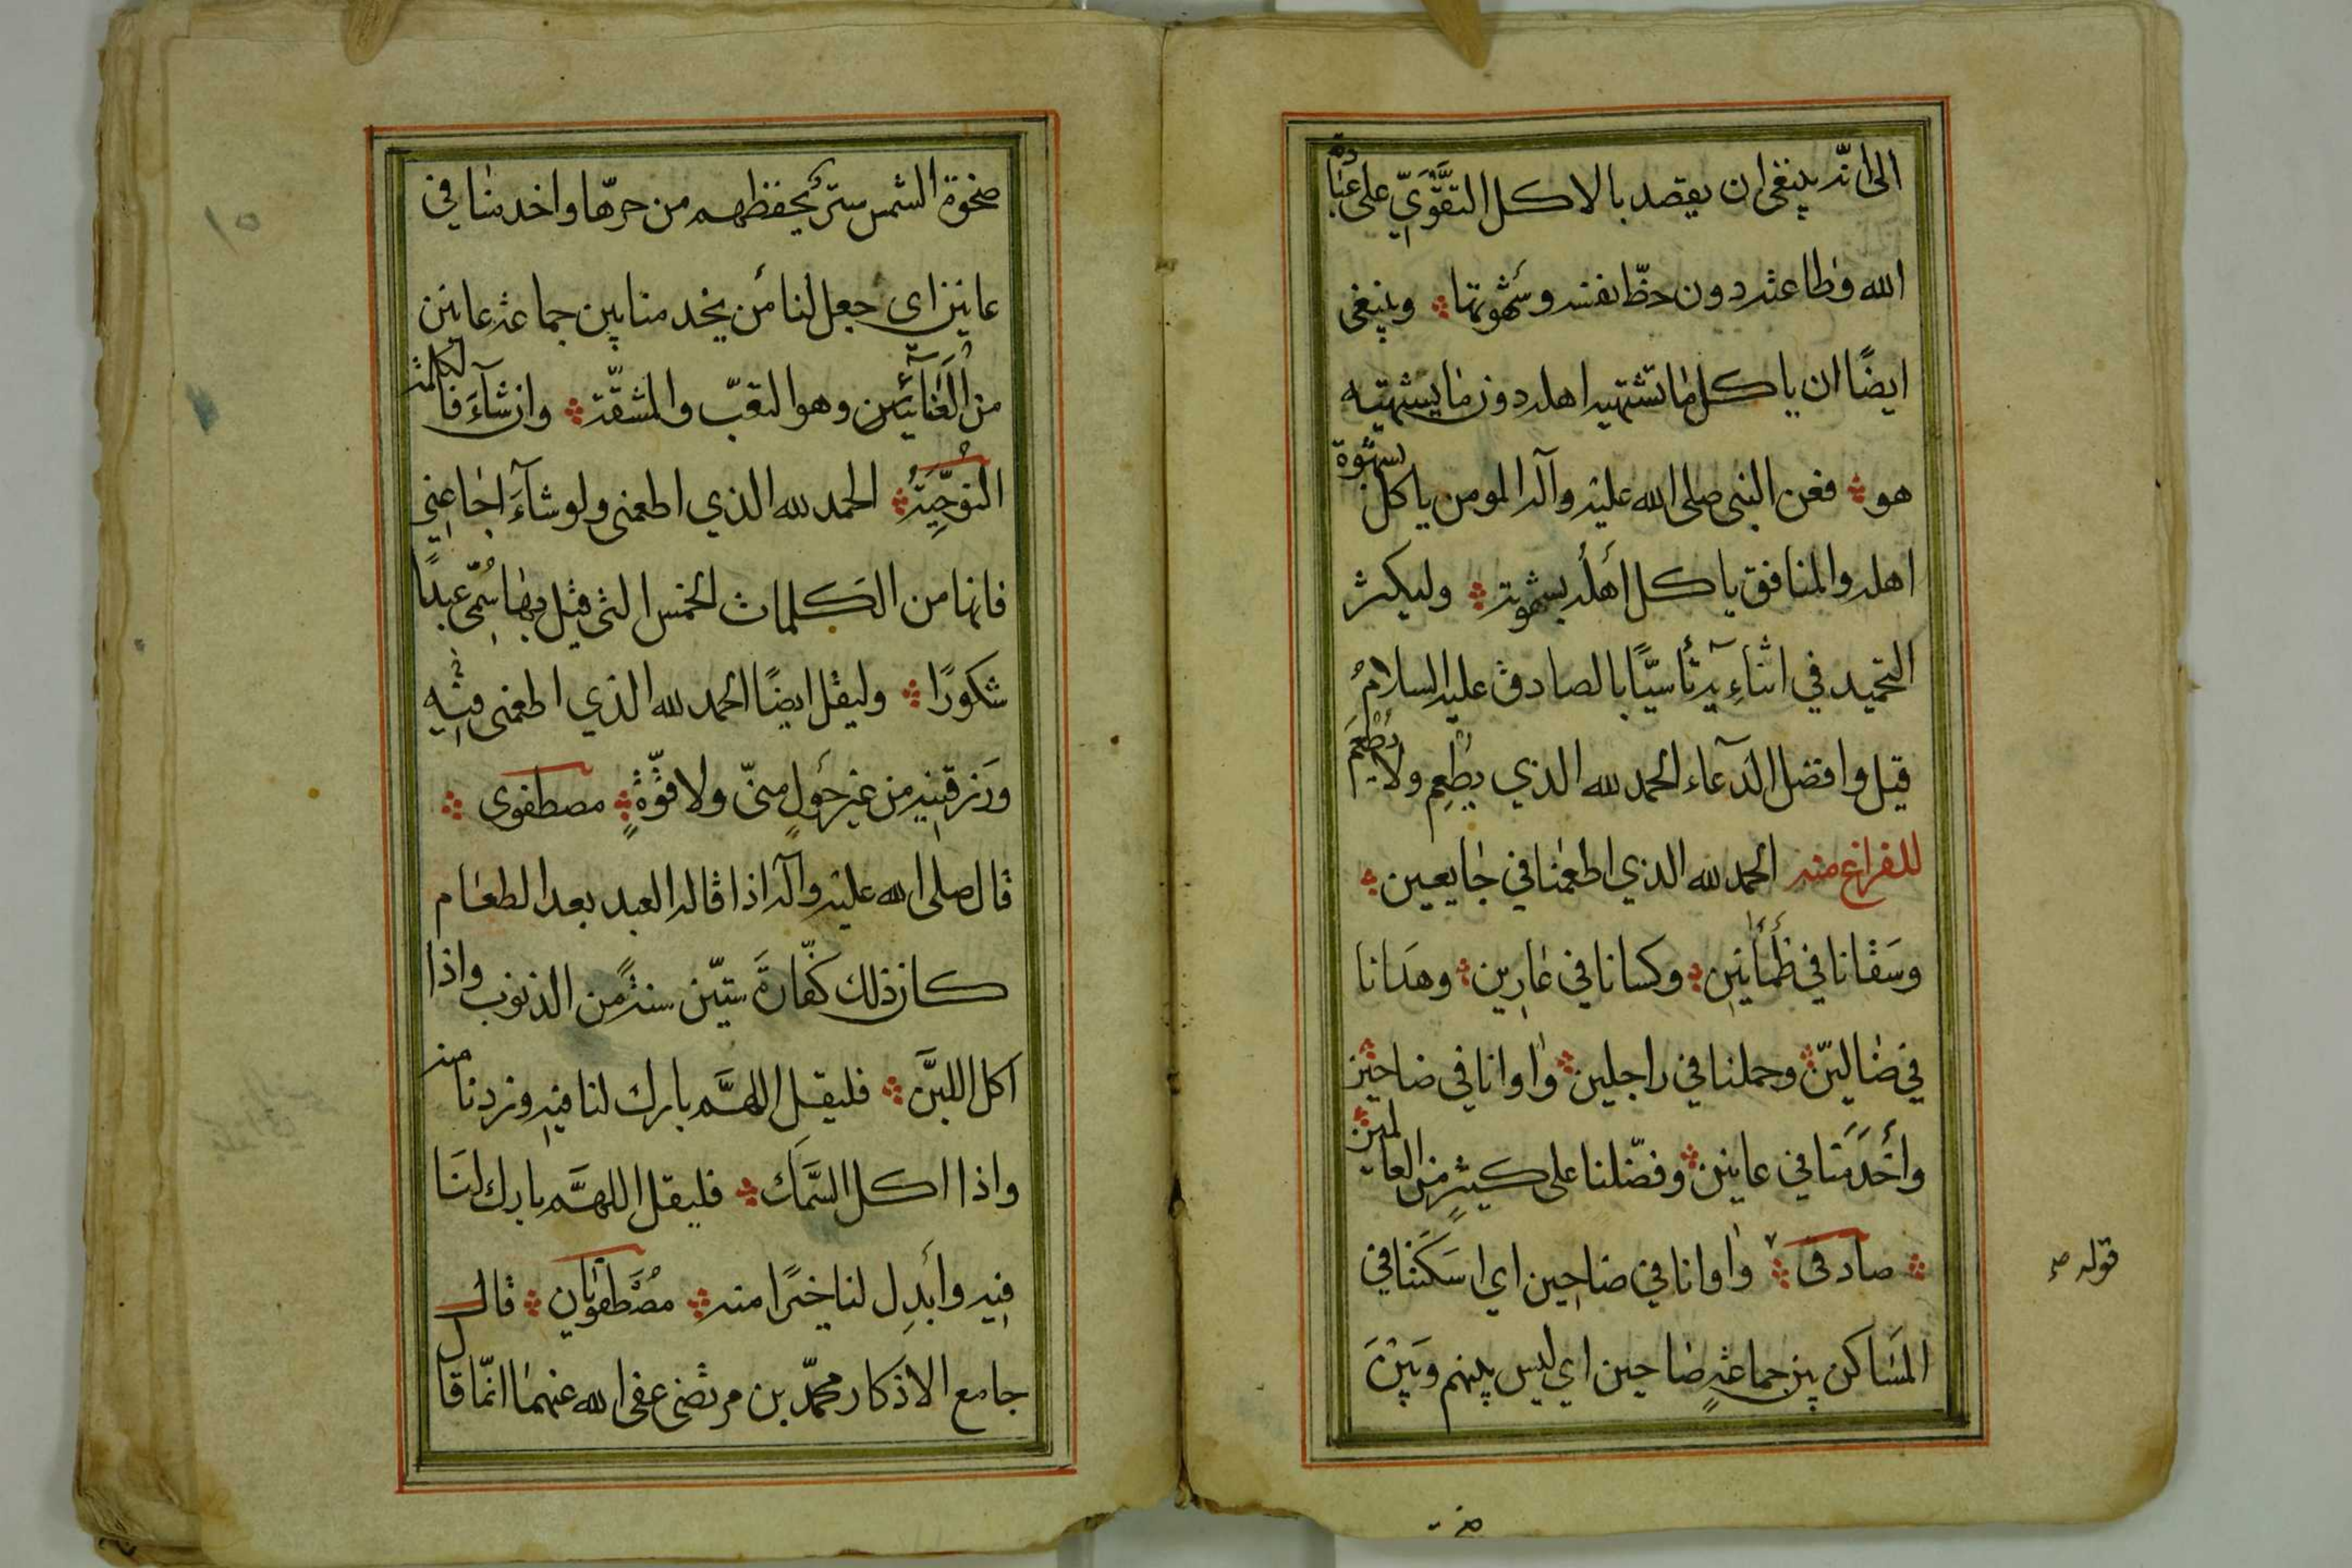 الى انّه ينبغى ان يقصد بالاكل التقَّوِّيَ على عبادة
الله وطاعته دون حظّ نفسه وشهوتها ؞ وينبغى
ايضًا ان ياكل ما تشتهيه اهله دون ما يشتهيه
هو ؞ فعن النبى صلى الله عليه وآله المومن ياكل بشهوة
اهله والمنافق ياكل اَهلُه بشهوته ؞ وليكثر
التحميد في اثناءِيه تأسيًّا بالصادق عليه السلامُ
قيل وافضل الدّعاء الحمد لله الذي يُطْعِم ولا يُطْعَمُ
للفراغ منه الحمد لله الذي اطعمنا في جايعين ؞
وسَقانا في ظَمأنين ؞ وكسانا في عارِين ؞ وهدَانا
في ضالين ؞ وحملنا في راجلين ؞ واوانا في ضاحين
وأخْدَمَنا في عانين ؞ وفضّلنا على كثيرٍ من العالمين ؞
؞ صادقى ؞ واوانا في ضاحِين اي اَسكَنَنا في
المَساكن بين جماعةٍ ضاحين اي ليس بينهم وبَينَ
قوله ص
ضحوة الشمس سترٌ يحفظهم من حرّها واخدمنا في
عانين اى جعل لنا مَن يخدمنا بين جماعة عانين
من العَنائين وهو التعَب والمشقّة ؞ وان شآءَ فالكلمة
النوحِيَّةُ ؞ الحمد لله الذي اطعمنى ولو شآءَ اجاعنِي
فانها من الكلمات الخمس التى قيل بها سُمّى عبدًا
شكورًا ؞ وليقل ايضًا الحمد لله الذي اطعمنى فيه
ورَزقنِيه من غير حَولٍ منّى ولا قوّةٍ ؞ مصطفوى ؞
قال صلى الله عليه وآله اذا قاله العبد بعد الطعام
كان ذلك كفّارةَ ستّين سنةً من الذنوب واذا
اكل اللبَن ؞ فليقل اللهمَّ بارك لنا فيه وزدنا منه
واذا اكل السَّمَك ؞ فليقل اللهمَّ بارك لنَا
فيه وأبدِل لنا خيرًا منه ؞ مصطفويان ؞ قال
جامع الاذكار محمّد بن مرتضى عفى الله عنهما انمّا قال
١٥